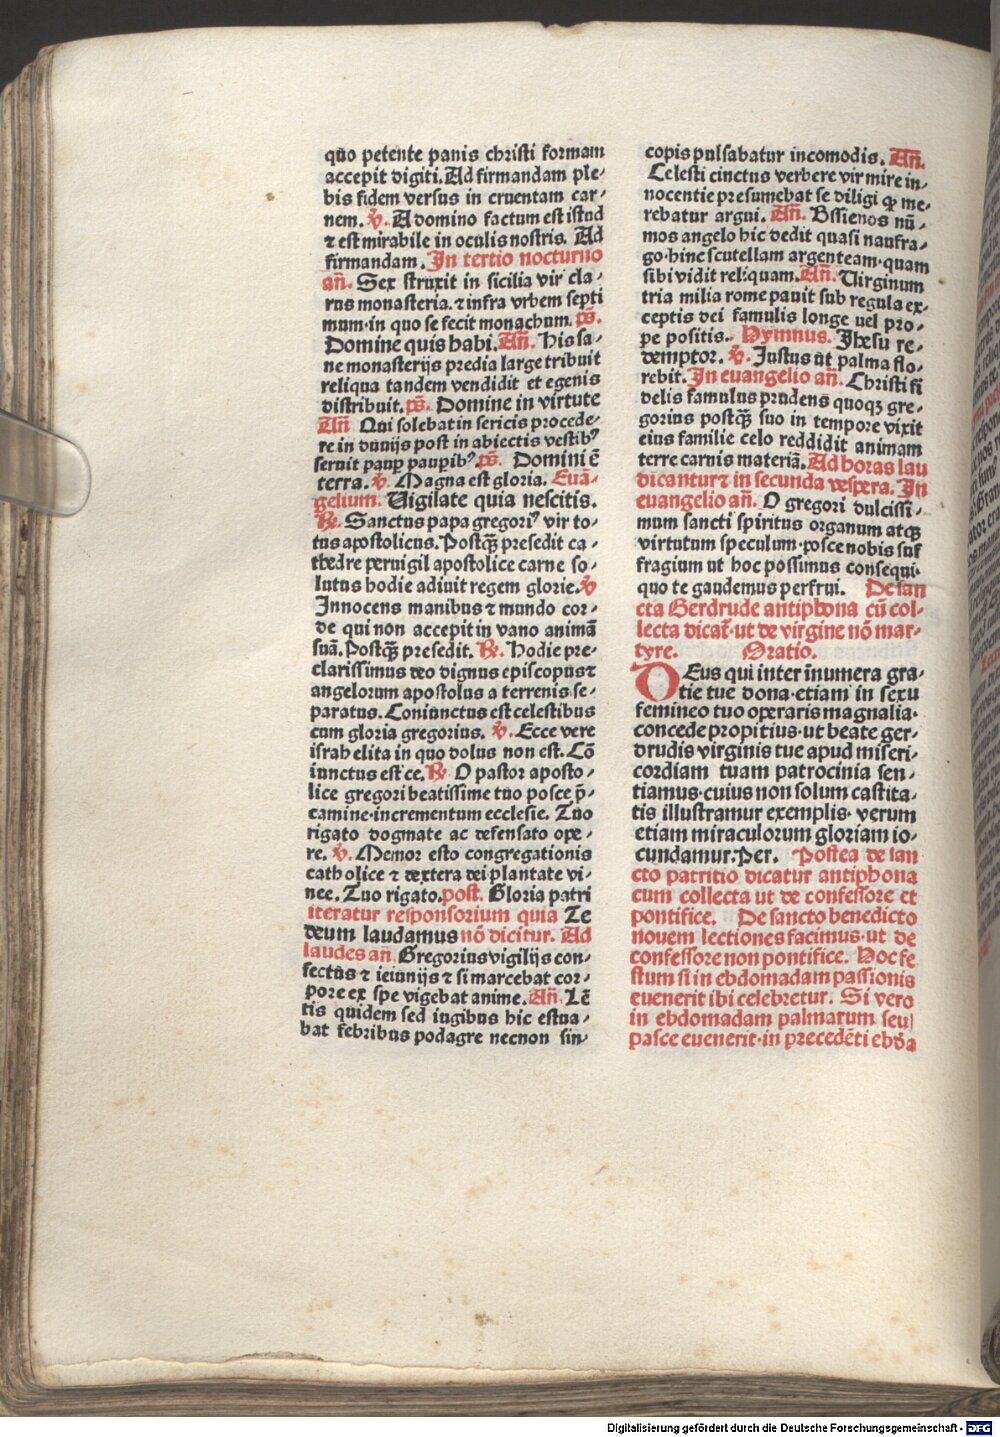 quo petente panis christi formam
accepit digiti. Ad firmandam ple-
bis fidem versus in cruentam car-
nem. ℣. A domino factum est istud
⁊ est mirabile in oculis nostris. Ad
firmandam. In tertio nocturno
añ. Sex struxit in sicilia vir cla-
rus monasteria. ⁊ infra vrbem septi
mum·in quo se fecit monachum. p̄s.
Domine quis habi. Añ. His sa-
ne monasterijs predia large tribuit
reliqua tandem vendidit et egenis
distribuit. p̄s. Domine in virtute
Añ Qui solebat in sericis procede-
re in dumijs post in abiectis vestibꝰ
seruit paup̲ paup̲ibꝰ. p̄s. Domini ē
terra. ℣. Magna est gloria. Euā-
gelium. Uigilate quia nescitis.
℟. Sanctus papa gregoriꝰ vir to-
tus apostolicus. Postq̄ȝ presedit ca-
thedre peruigil apostolice carne so-
lutus hodie adiuit regem glorie. ℣
Innocens manibus ⁊ mundo cor-
de qui non accepit in vano animā
suā. Postq̄ȝ presedit. ℟. Hodie pre-
clarissimus deo dignus episcopus ⁊
angelorum apostolus a terrenis se-
paratus. Coniunctus est celestibus
cum gloria gregorius. ℣. Ecce vere
israhelita in quo dolus non est. Cō
iunctus est ce. ℟ O pastor aposto-
lice gregori beatissime tuo posce p̄-
camine·incrementum ecclesie. Tuo
rigato dogmate ac defensato ope-
re. ℣. Memor esto congregationis
catholice ⁊ dextera dei plantate vi-
nee. Tuo rigato. post. Gloria patri
iteratur responsorium quia Te
deum laudamus nō dicitur. Ad
laudes añ Gregorius vigilijs con-
fectus ⁊ ieiunijs ⁊ si marcebat cor-
pore ex spe vigebat anime. Añ. Lē
tis quidem sed iugibus hic estua-
bat febribus podagre necnon sin-
copis pulsabatur incomodis. Añ.
Celesti cinctus verbere vir mire in-
nocentie presumebat se diligi ꝙ me-
rebatur argui. Añ. Bssienos nū-
mos angelo hic dedit quasi naufra-
go·hinc scutellam argenteam·quam
sibi vidit reliquam. Añ. Uirginum
tria milia rome pauit sub regula ex-
ceptis dei famulis longe uel pro-
pe positis. Hymnus. Jhesu re-
demptor. ℣. Justus ut palma flo-
rebit. In euangelio añ. Christi fi
delis famulus prudens quoqȝ gre-
gorius postq̄ȝ suo in tempore vixit
eius familie celo reddidit animam
terre carnis materiā. Ad horas lau
dicantur ⁊ in secunda vespera. In
euangelio añ. O gregori dulcissi-
mum sancti spiritus organum atqȝ
virtutum speculum·posce nobis suf
fragium ut hoc possimus consequi·
quo te gaudemus perfrui. De san
cta Gerdrude antiphona cū col-
lecta dicať·ut de virgine nō mar-
tyre. Oratio.
DEus qui inter īnumera gra-
tie tue dona·etiam in sexu
femineo tuo operaris magnalia·
concede propitius·ut beate ger-
drudis virginis tue apud miseri-
cordiam tuam patrocinia sen-
tiamus·cuius non solum castita-
tis illustramur exemplis· verum
etiam miraculorum gloriam io-
cundamur. Per. Postea de san
cto patritio dicatur antiphona
cum collecta ut de confessore et
pontifice. De sancto benedicto
nouem lectiones facimus·ut de
confessore non pontifice. Hoc fe
stum si in ebdomadam passionis
euenerit ibi celebretur. Si vero
in ebdomadam palmarum seu
pasce euenerit·in precedēti ebd̄a
Digitalisierung gefördert durch die Deutsche Forschungsgemeinschaft - DFG